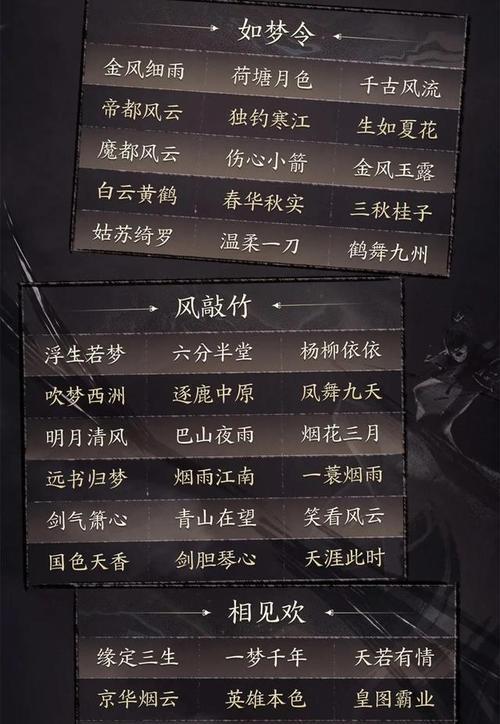 如梦令
金风细雨 荷塘月色 千古风流
帝都风云 独钓寒江 生如夏花
魔都风云 伤心小箭 金风玉露
白云黄鹤 春华秋实 三秋桂子
姑苏绮罗 温柔一刀 鹤舞九州
风敲竹
浮生若梦 六分半堂 杨柳依依
吹梦西洲 逐鹿中原 凤舞九天
明月清风 巴山夜雨 烟花三月
远书归梦 烟雨江南 一蓑烟雨
剑气箫心 青山在望 笑看风云
国色天香 剑胆琴心 天涯此时
相见欢
缘定三生 一梦千年 天若有情
京华烟云 英雄本色 皇图霸业